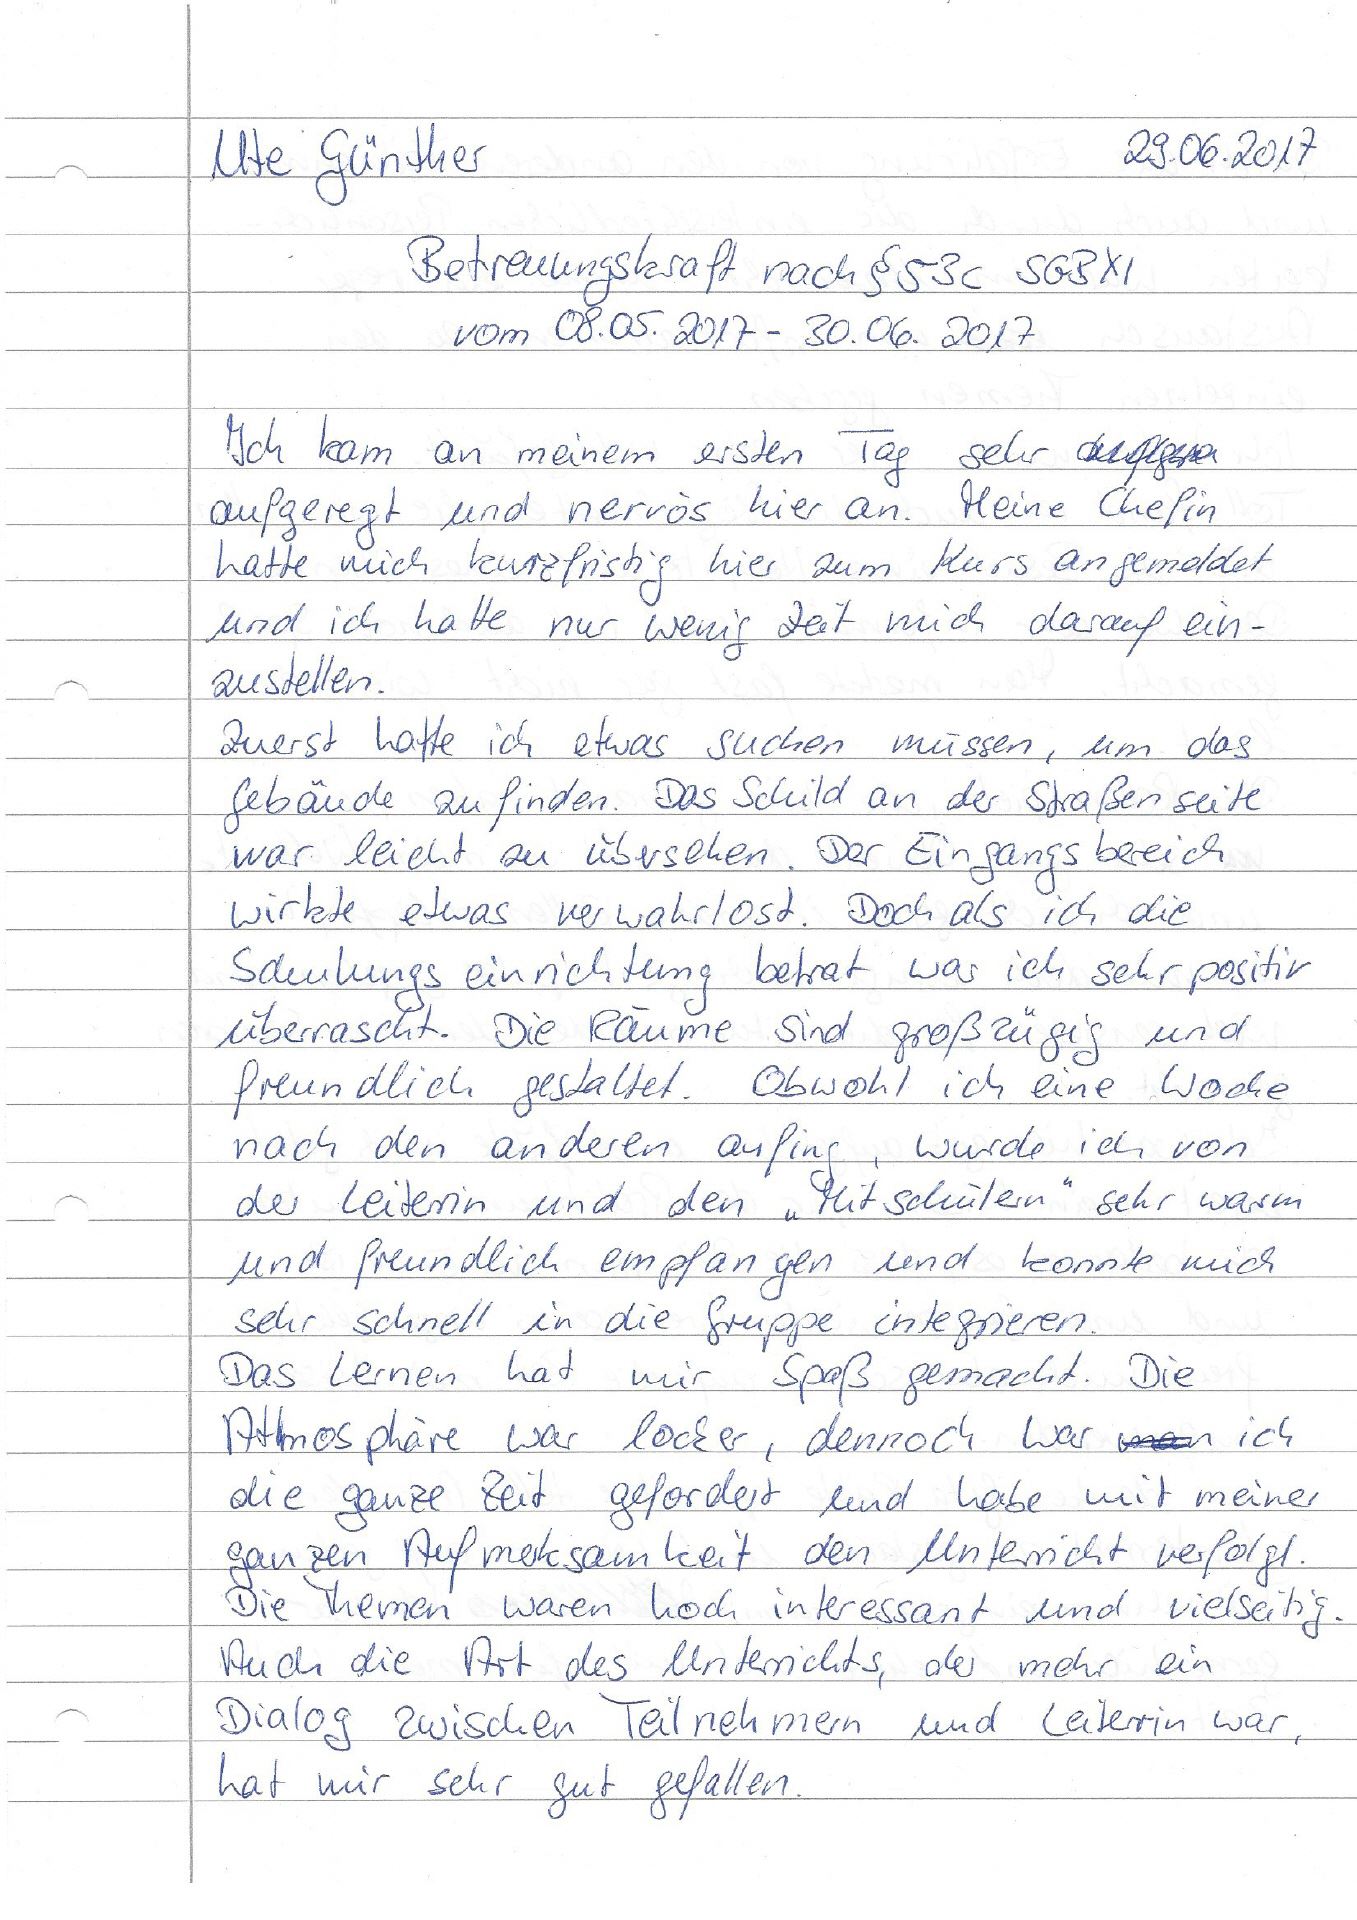 Ute Günther 29.06.2017
Betreuungskraft nach § 53c SGB XI
vom 08.05.2017 - 30.06.2017
Ich kam an meinem ersten Tag sehr
aufgeregt und nervös hier an. Meine Chefin
hatte mich kurzfristig hier zum Kurs angemeldet
und ich hatte nur wenig Zeit mich darauf ein-
zustellen.
Zuerst hatte ich etwas suchen müssen, um das
Gebäude zu finden. Das Schild an der Straßenseite
war leicht zu übersehen. Der Eingangsbereich
wirkte etwas verwahrlost. Doch als ich die
Schulungseinrichtung betrat war ich sehr positiv
überrascht. Die Räume sind großzügig und
freundlich gestaltet. Obwohl ich eine Woche
nach den anderen anfing, wurde ich von
der Leiterin und den „Mitschülern“ sehr warm
und freundlich empfangen und konnte mich
sehr schnell in die Gruppe integrieren.
Das Lernen hat mir Spaß gemacht. Die
Atmosphäre war locker, dennoch war ich
die ganze Zeit gefordert und habe mit meiner
ganzen Aufmerksamkeit den Unterricht verfolgt.
Die Themen waren hoch interessant und vielseitig.
Auch die Art des Unterrichts, der mehr ein
Dialog zwischen Teilnehmern und Leiterin war,
hat mir sehr gut gefallen.